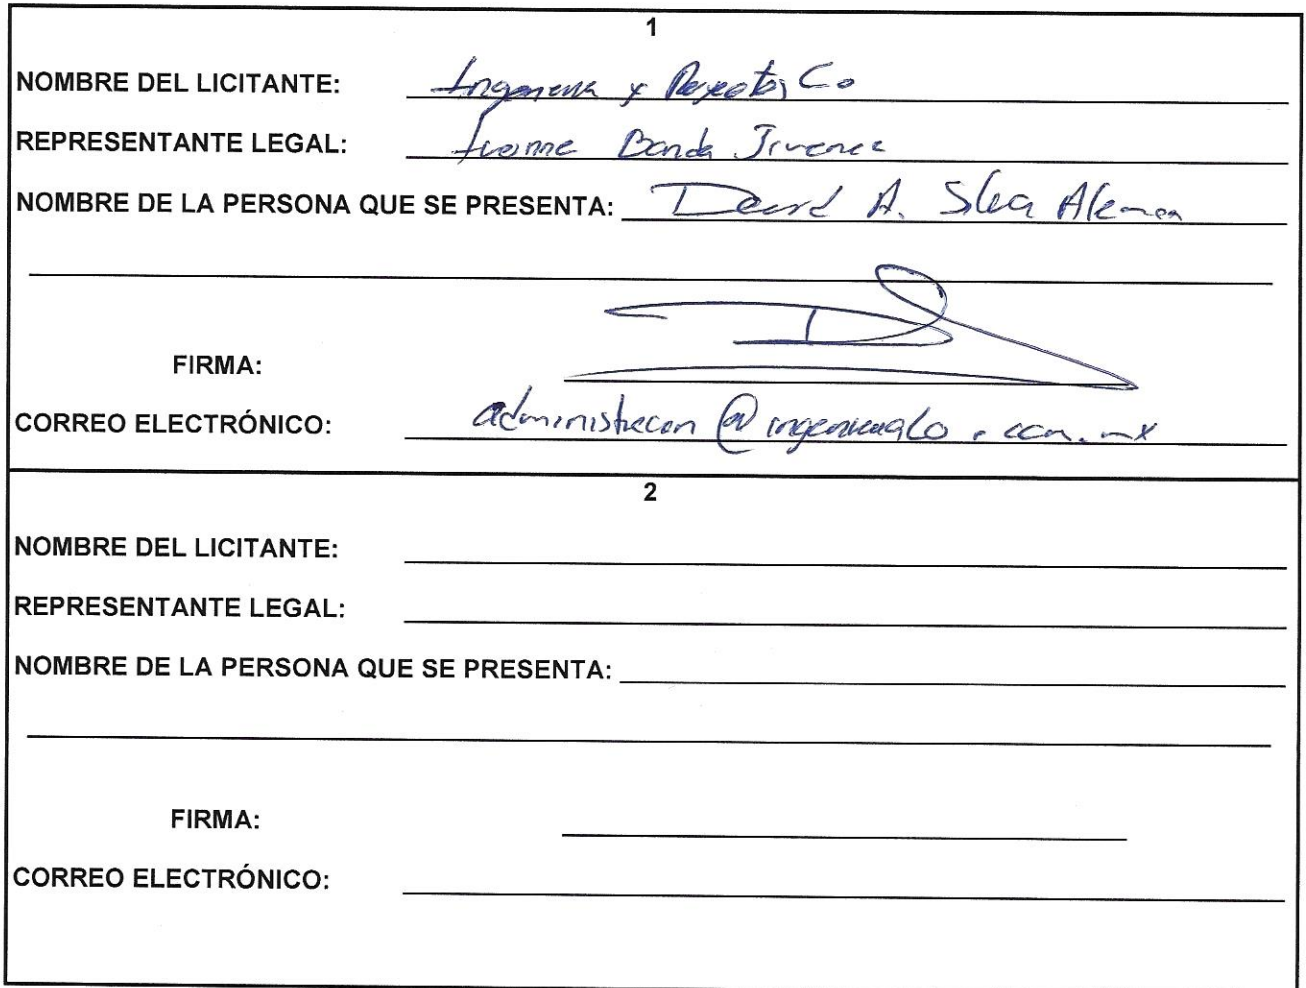 1
NOMBRE DEL LICITANTE: Ingenieria y Proyectos Co
REPRESENTANTE LEGAL: Ivonne Banda Jimenez
NOMBRE DE LA PERSONA QUE SE PRESENTA: David A. Silva Aleman
FIRMA:
CORREO ELECTRÓNICO: administracion@ingenieriaCo.com.mx
2
NOMBRE DEL LICITANTE:
REPRESENTANTE LEGAL:
NOMBRE DE LA PERSONA QUE SE PRESENTA:
FIRMA:
CORREO ELECTRÓNICO: